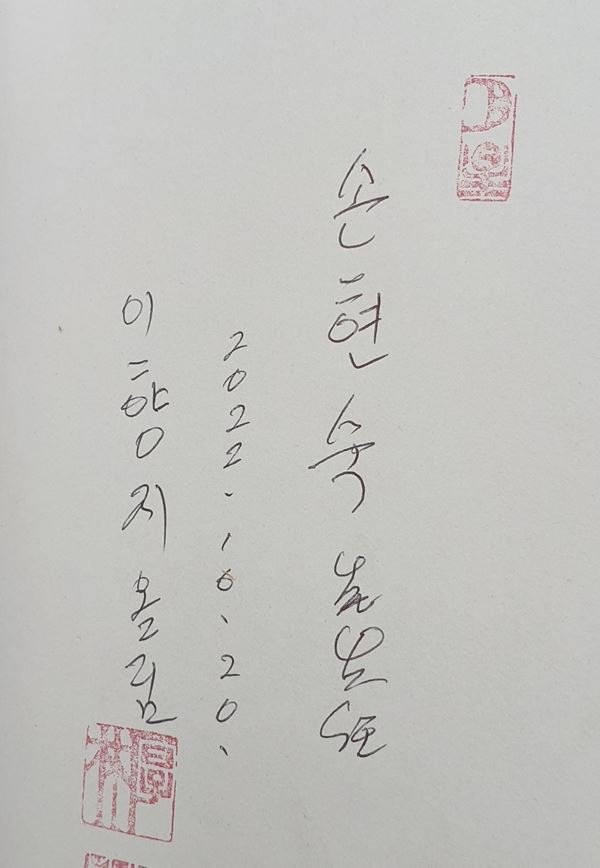 손현숙 先生任
2022.10.20.
이향지 올림